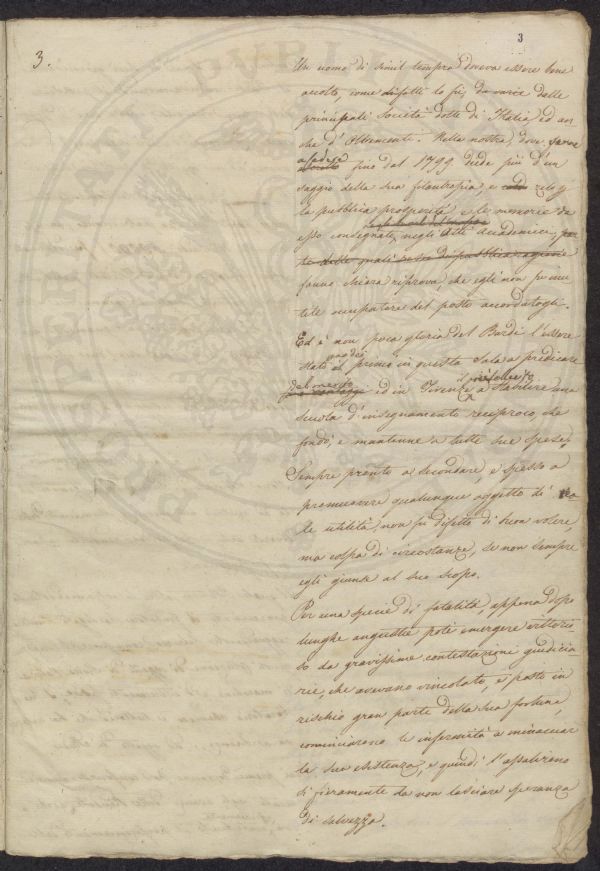 3
3.
Un uomo di simil tempra doveva essere bene
accolto, come difatti lo fù, da varie delle
principali Società dotte di Italia ed an
che d' Oltremonti. Nella nostra, dove
fino dal 1799 diede più d'un
saggio della sua filantropia, e zelo p
la pubblica prosperità e le memorie da
esso consegnate negli Atti Accademici,
fanno chiara riprova, che egli non fu inu
tile occupatore del posto accordatogli.
Ed è non poca gloria del Bardi l'essere
stato il primo in questa Sala a predicare
ed in Firenze a stabilire una
scuola d'insegnamento reciproco, che
fondò, e mantenne a tutte sue spese.
Sempre pronto a secondare, e spesso a
promuovere qualunque oggetto di rea
le utilità, non fu difetto di suo volere,
ma colpa di circostanze, se non sempre
egli giunse al suo scopo.
Per una specie di fatalità, appena dopo
lunghe angustie potè emergere vittorio
so da gravissime contestazioni giudicia
rie, che avevano vincolato, e posto in
rischio gran parte della sua fortuna,
cominciarono le infermità a minacciar
la sua esistenza, e quindi l'assalirono
sì fieramente da non lasciare speranza
di salvezza.